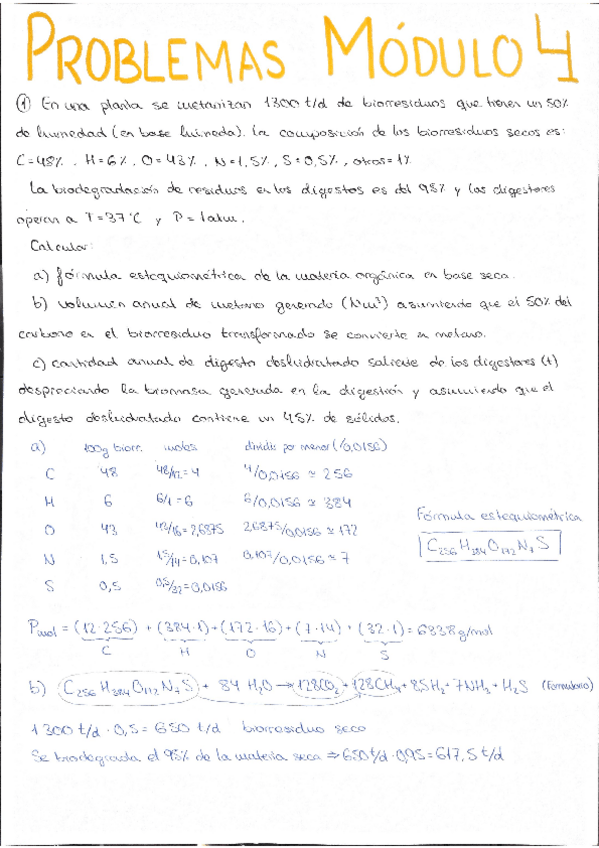 PROBLEMAS MÓDULO 4
① En una planta se metanizan 1300 t/d de biorresiduos que tienen un 50%
de humedad (en base húmeda). La composición de los biorresiduos secos es:
C=48%, H=6%, O=43%, N=1,5%, S=0,5%, otros=1%
La biodegradación de residuos en los digestos es del 95% y los digestores
operan a T=37°C y P=1atm.
Calcular:
a) fórmula estequiométrica de la materia orgánica en base seca.
b) volumen anual de metano generado (Nm³) asumiendo que el 50% del
carbono en el biorresiduo transformado se convierte en metano.
c) cantidad anual de digesto deshidratado saliente de los digestores (t)
despreciando la biomasa generada en la digestión y asumiendo que el
digesto deshidratado contiene un 45% de sólidos.
a) 100g biorr. moles dividir por menor (/0,0156)
C 48 48/12=4 4/0,0156 ≃ 256
H 6 6/1=6 6/0,0156 ≃ 384
O 43 43/16=2,6875 2,6875/0,0156 ≃ 172
N 1,5 1,5/14=0,107 0,107/0,0156 ≃ 7
S 0,5 0,5/32=0,0156
Fórmula estequiométrica
C₂₅₆H₃₈₄O₁₇₂N₇S
Pmol = (12·256) + (384·1) + (172·16) + (7·14) + (32·1) = 6338 g/mol
C H O N S
b) C₂₅₆H₃₈₄O₁₇₂N₇S + 84 H₂O → 128CO₂ + 128CH₄ + 85H₂ + 7NH₃ + H₂S (Formulario)
1300 t/d · 0,5 = 650 t/d biorresiduo seco
Se biodegrada el 95% de la materia seca ⇒ 650 t/d · 0,95 = 617,5 t/d